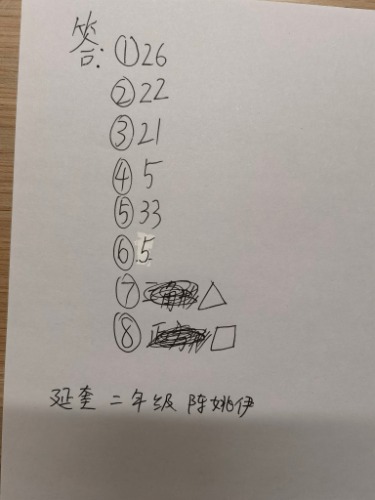 答: ①26
②22
③21
④5
⑤33
⑥5
⑦△
⑧□
延奎 二年级 陈姚伊